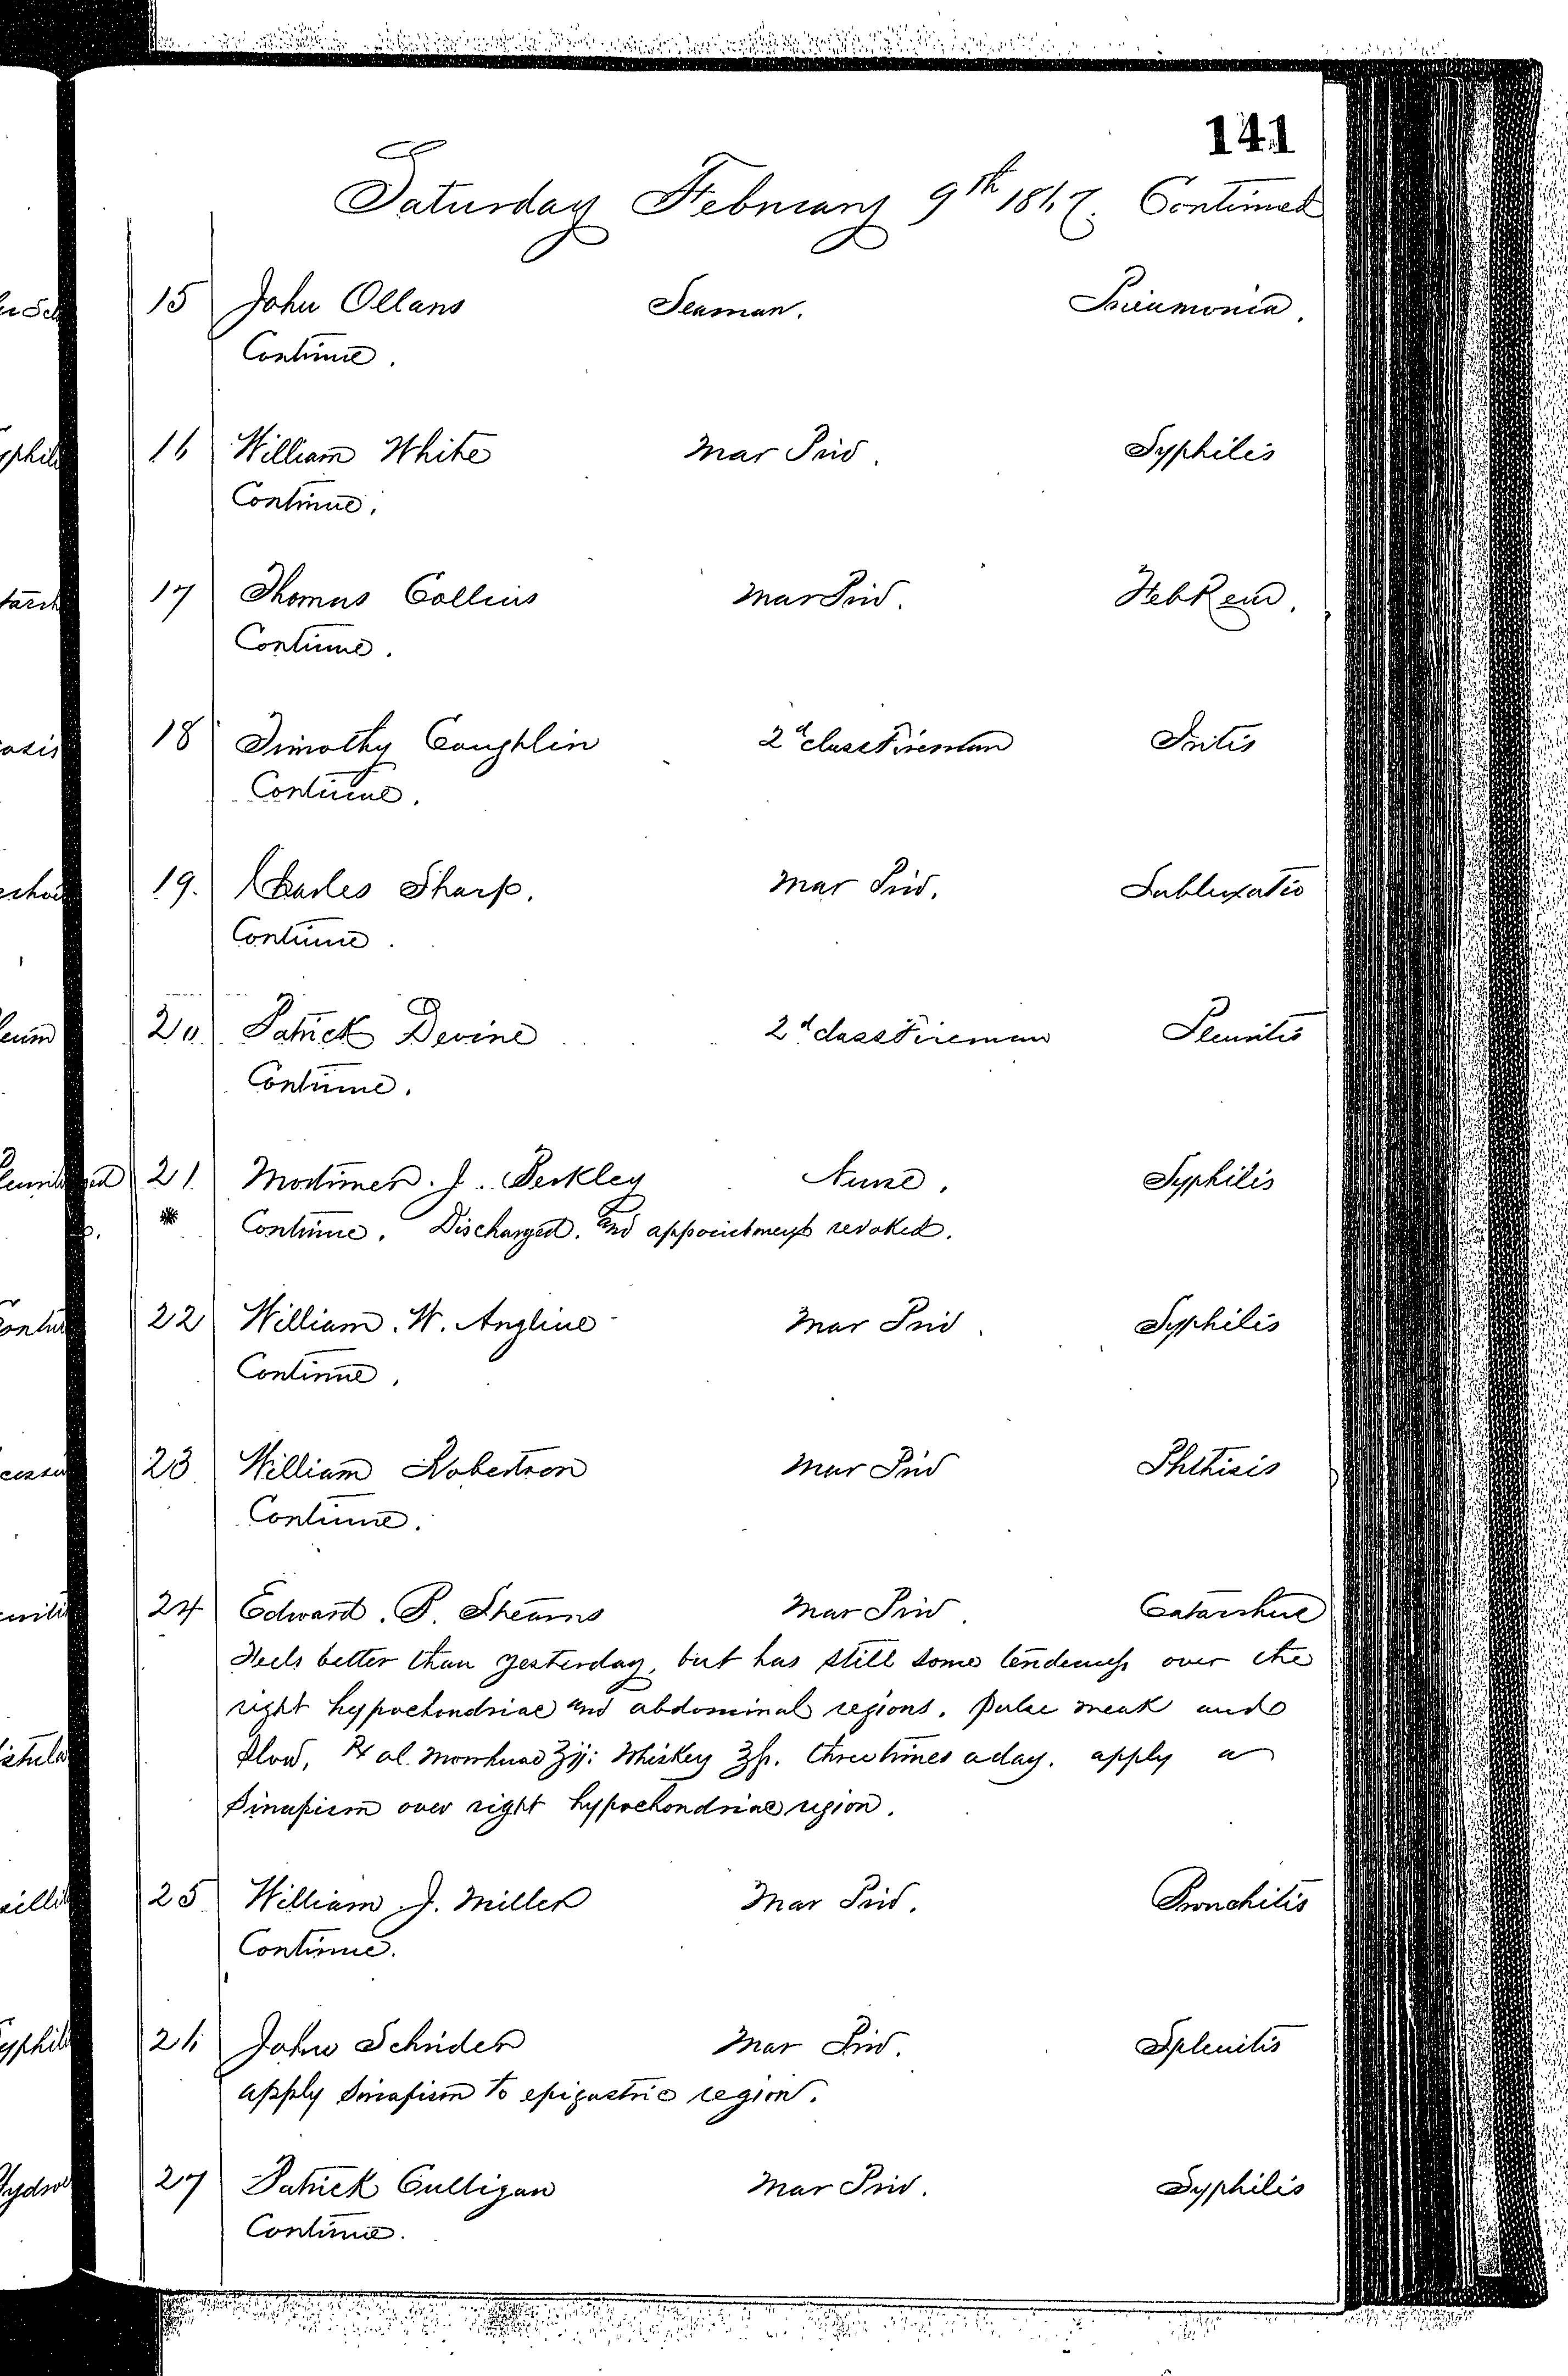 141
Saturday February 9th 1867. Continued
15 John Ollans Seaman. Pneumonia.
Continue.
16 William White Mar Priv. Syphilis
Continue.
17 Thomas Collins Mar Priv. Feb Rem.
Continue.
18 Timothy Coughlin 2d class Fireman Iritis
Continue.
19. Charles Sharp. Mar Priv. Subluxatio
Continue.
20 Patrick Devine 2d class Fireman Pleuritis
Continue.
21 Mortimer. J. Berkley Nurse. Syphilis
* Continue. Discharged. and appointment revoked.
22 William. W. Angline Mar Priv. Syphilis
Continue.
23 William Robertson Mar Priv Phthisis
Continue.
24 Edward. P. Stearns Mar Priv. Catarrhus
Feels better than yesterday, but has still some tenderness over the
right hypochondriac and abdominal regions. pulse weak and
slow. ℞ ol. Morrhuae ʒij: Whiskey ℥ss. three times a day. apply a
sinapism over right hypochondriac region.
25 William J. Miller Mar Priv. Bronchitis
Continue.
26 John Schrider Mar Priv. Splenitis
apply sinapism to epigastric region.
27 Patrick Culligan Mar Priv. Syphilis
Continue.